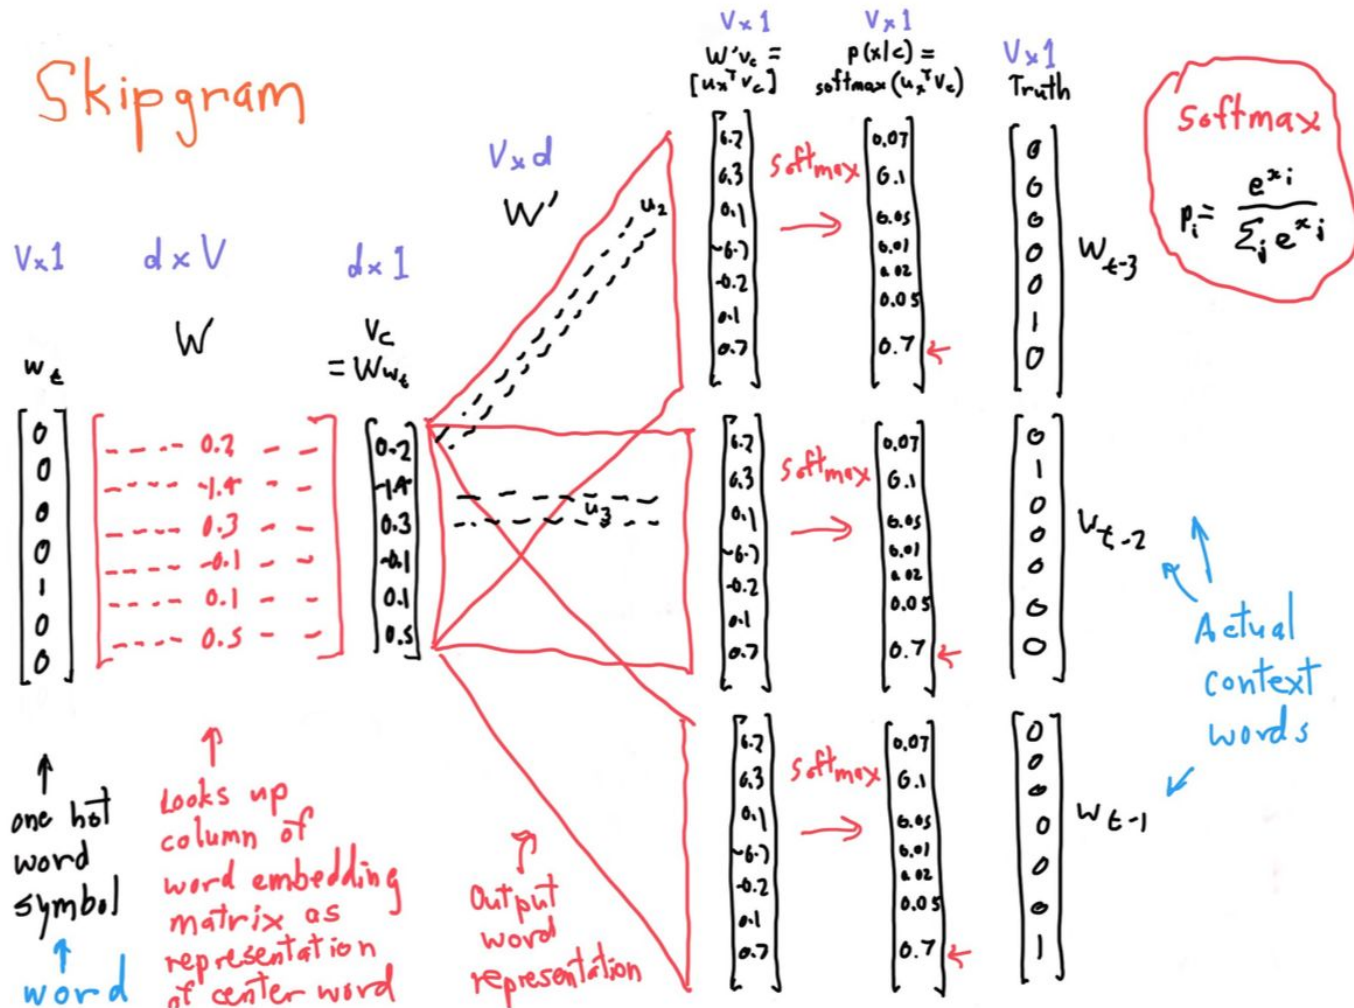 Skipgram
V×1
d×V
d×1
V×d
V×1
V×1
V×1
W
W'
w_t
v_c
= Ww_t
W'v_c =
[u_x^T v_c]
p(x|c) =
softmax(u_x^T v_c)
Truth
0
0
0
0
1
0
0
0.2
-1.4
0.3
-0.1
0.1
0.5
0.2
-1.4
0.3
-0.1
0.1
0.5
u_2
u_3
6.7
0.3
0.1
-0.7
-0.2
0.1
0.7
softmax
0.07
0.1
0.05
0.01
0.02
0.05
0.7
0
0
0
0
0
1
0
w_t-3
6.7
0.3
0.1
-0.7
-0.2
0.1
0.7
softmax
0.07
0.1
0.05
0.01
0.02
0.05
0.7
0
1
0
0
0
0
0
w_t-2
6.7
0.3
0.1
-0.7
-0.2
0.1
0.7
softmax
0.07
0.1
0.05
0.01
0.02
0.05
0.7
0
0
0
0
0
0
1
w_t-1
softmax
p_i = e^x_i / Σ_j e^x_j
Actual
context
words
one hot
word
symbol
word
Looks up
column of
word embedding
matrix as
representation
of center word
Output
word
representation